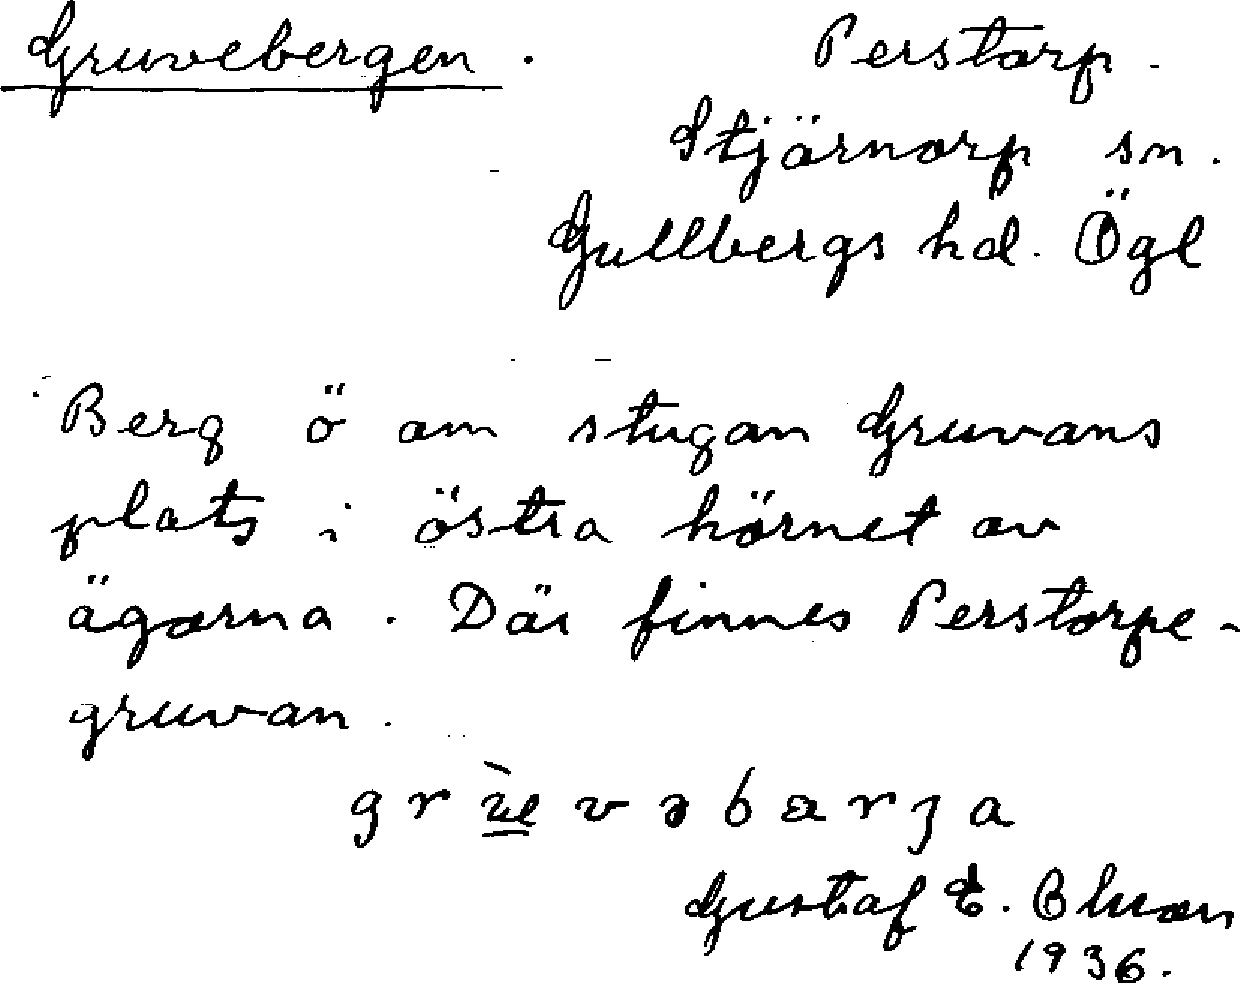 Gruvebergen. Perstorp.
Stjärnorp sn.
Gullbergs hd. Ögl
Berg ö om stugan Gruvans
plats i östra hörnet av
ägorna. Där finnes Perstorpe-
gruvan.
Gustaf E. Bluon
1936.